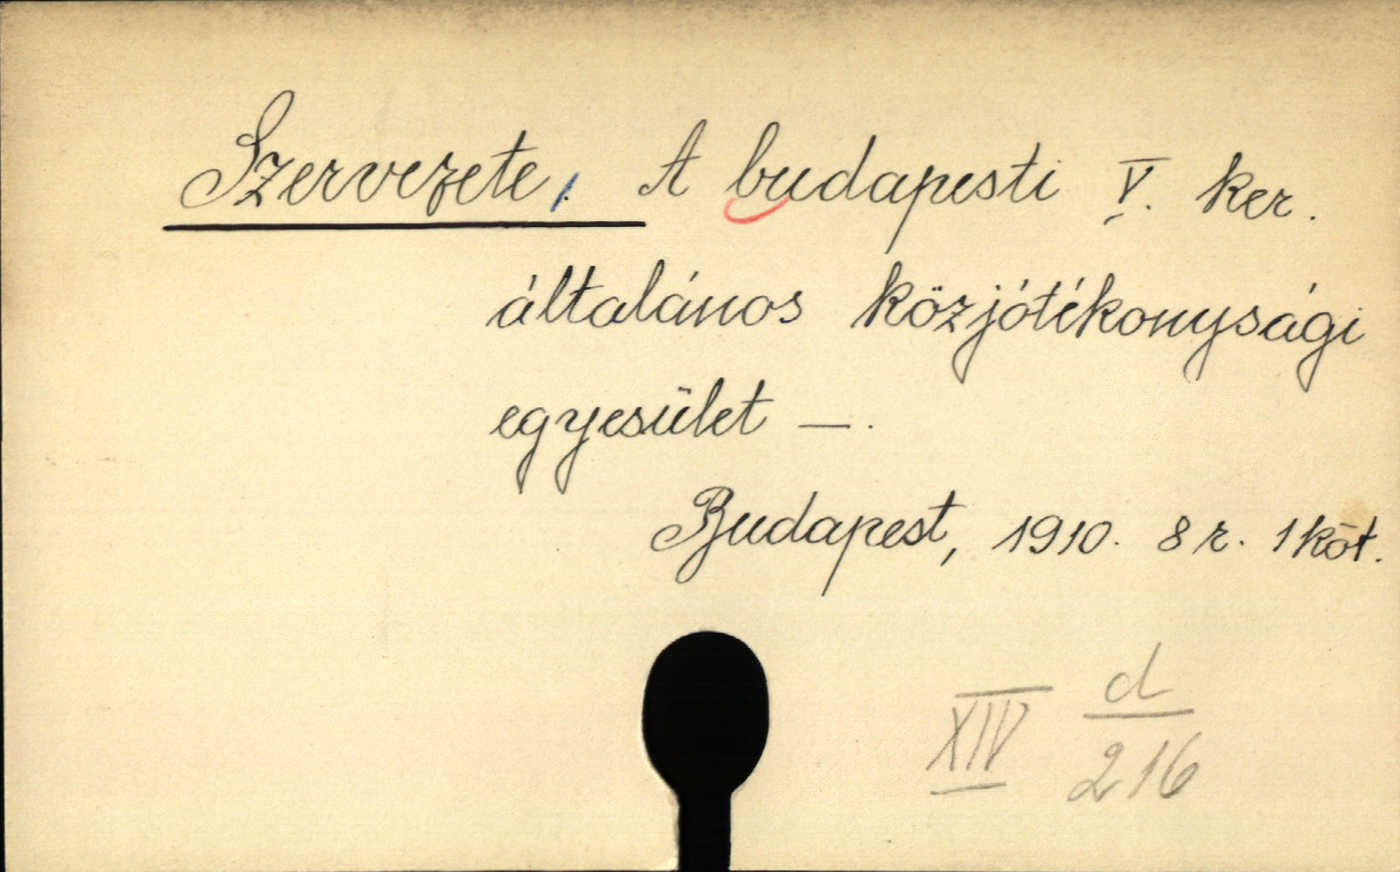 Szervezete, A budapesti V. ker.
általános közjótékonysági
egyesület —.
Budapest, 1910. 8 r. 1 köt.
XIV d/216